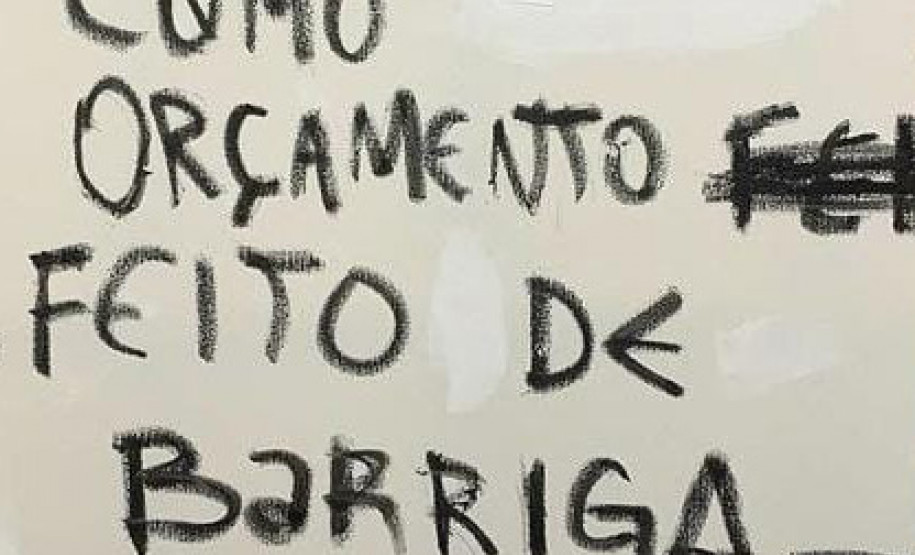 COMO
ORÇAMENTO FEI
FEITO DE
BaRRIGA